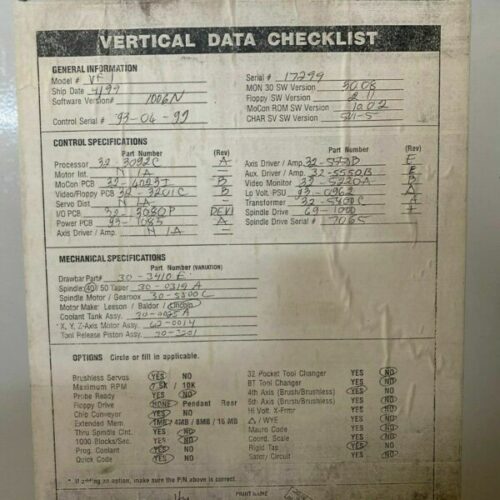 VERTICAL DATA CHECKLIST
GENERAL INFORMATION
Model # VF Serial # 17299
Ship Date 4/99 MON 30 SW Version
Software Version# 1006N Floppy SW Version 2.11
MoCon ROM SW Version 10.02
Control Serial # 93-06-99 CHAR SV SW Version
CONTROL SPECIFICATIONS
Part Number (Rev) Part Number (Rev)
Processor 32-3092C A Axis Driver / Amp. E
Motor Int. N/A — Aux. Driver / Amp. 32-5550B E
MoCon PCB 32-4023T B Video Monitor 33-5220A B
Video/Floppy PCB 32-3201C B Lo Volt. PSU 93-0962 A
Servo Dist N/A — Transformer A
I/O PCB 32-3080P Spindle Drive 69-1000
Power PCB 93-1085 A Spindle Drive Serial # 7065
Axis Driver / Amp. N/A —
MECHANICAL SPECIFICATIONS
Part Number (VARIATION)
Drawbar Part# 30-3410 E
Spindle: 40 / 50 Taper 30-0319 A
Spindle Motor / Gearbox 30-5500 C
Motor Make: Leeson / Baldor /
Coolant Tank Assy. 30-0025 A
X, Y, Z-Axis Motor Assy. 62-0014
Tool Release Piston Assy. 30-3201
OPTIONS Circle or fill in applicable.
Brushless Servos YES NO 32 Pocket Tool Changer YES NO
Maximum RPM 7.5K / 10K BT Tool Changer YES NO
Probe Ready YES NO 4th Axis (Brush/Brushless) YES NO
Floppy Drive NONE Pendant Rear 5th Axis (Brush/Brushless) YES NO
Chip Conveyor YES NO Hi Volt. X-Frmr YES NO
Extended Mem. 1MB / 4MB / 8MB / 16 MB △ / WYE YES NO
Thru Spindle Clnt. YES NO Macro Code YES NO
1000 Blocks/Sec. YES NO Coord. Scale YES NO
Prog. Coolant YES NO Rigid Tap YES NO
Quick Code YES NO Safety Circuit YES NO
* If adding an option, make sure the P/N above is correct.
PRINT NAME